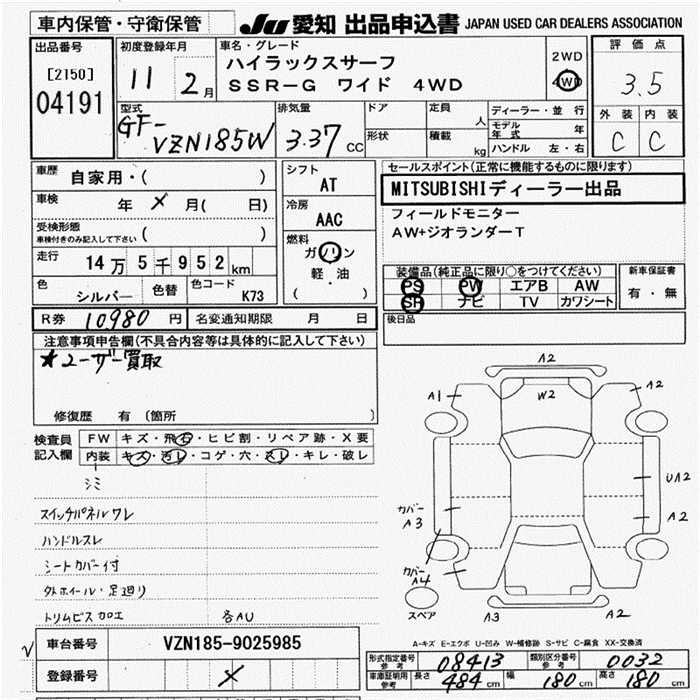 車内保管・守衛保管
JU 愛知 出品申込書 JAPAN USED CAR DEALERS ASSOCIATION
出品番号
[2150]
04191
初度登録年月
11 2月
車名・グレード
ハイラックスサーフ
SSR-G ワイド 4WD
2WD
4WD
評価点
3.5
外装 内装
C C
型式
GF-
VZN185W
排気量
3.37 CC
ドア
形状
定員 人
積載 kg
ディーラー・並行
モデル年式 年
ハンドル 左・右
車歴
自家用・( )
車検
年 メ 月( 日)
受検形態
車検付きのみ記入して下さい ( )
走行
14万5千952km
色
シルバー
色替
色コード
K73
シフト
AT
冷房
AAC
燃料
ガソリン
軽・油
( )
セールスポイント(正常に機能するものに限ります)
MITSUBISHIディーラー出品
フィールドモニター
AW+ジオランダーT
装備品(純正品に限り○をつけてください)
PS PW エアB AW
SR ナビ TV カワシート
新車保証書
有・無
後日品
R券 10980 円
名変通知期限 月 日
注意事項申告欄(不具合内容等は具体的に記入して下さい)
★ユーザー買取
修復歴 有 (箇所 )
検査員
記入欄
FW キズ・飛石・ヒビ割・リペア跡・X要
内装 キズ・汚レ・コゲ・穴・スレ・キレ・破レ
シミ
スイッチパネルワレ
ハンドルスレ
シートカバー付
外ホイール・足廻り
トリムビス加工 各AU
A2
A1
W2
A2
UA2
A2
カバー
A3
カバー
A4
スペア
A3
A2
A-キズ E-エクボ U-凹み W-補修跡 S-サビ C-腐食 XX-交換済
√ 車台番号 VZN185-9025985
登録番号 メ
形式指定番号
参考
08413
類別区分番号
参考
0032
車庫証明用
参考
長さ 484cm 幅 180cm 高さ 180cm